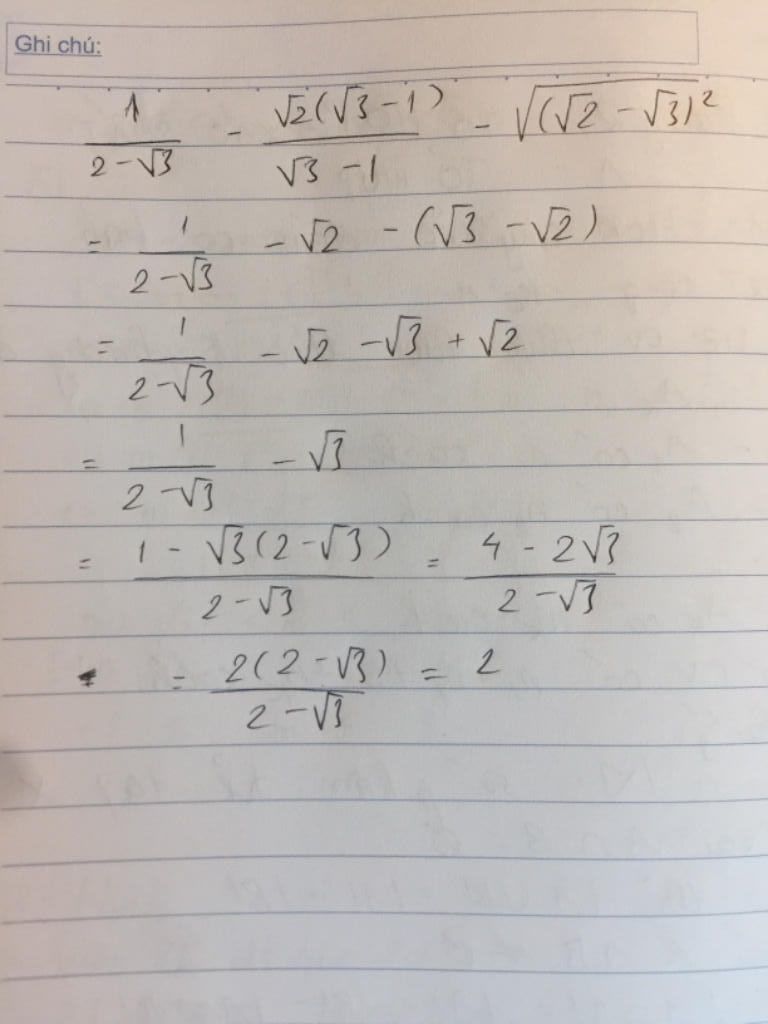 Ghi chú:
1/(2-√3) - √2(√3-1)/(√3-1) - √((√2-√3)²)
= 1/(2-√3) - √2 - (√3-√2)
= 1/(2-√3) - √2 - √3 + √2
= 1/(2-√3) - √3
= (1 - √3(2-√3))/(2-√3) = (4-2√3)/(2-√3)
= 2(2-√3)/(2-√3) = 2